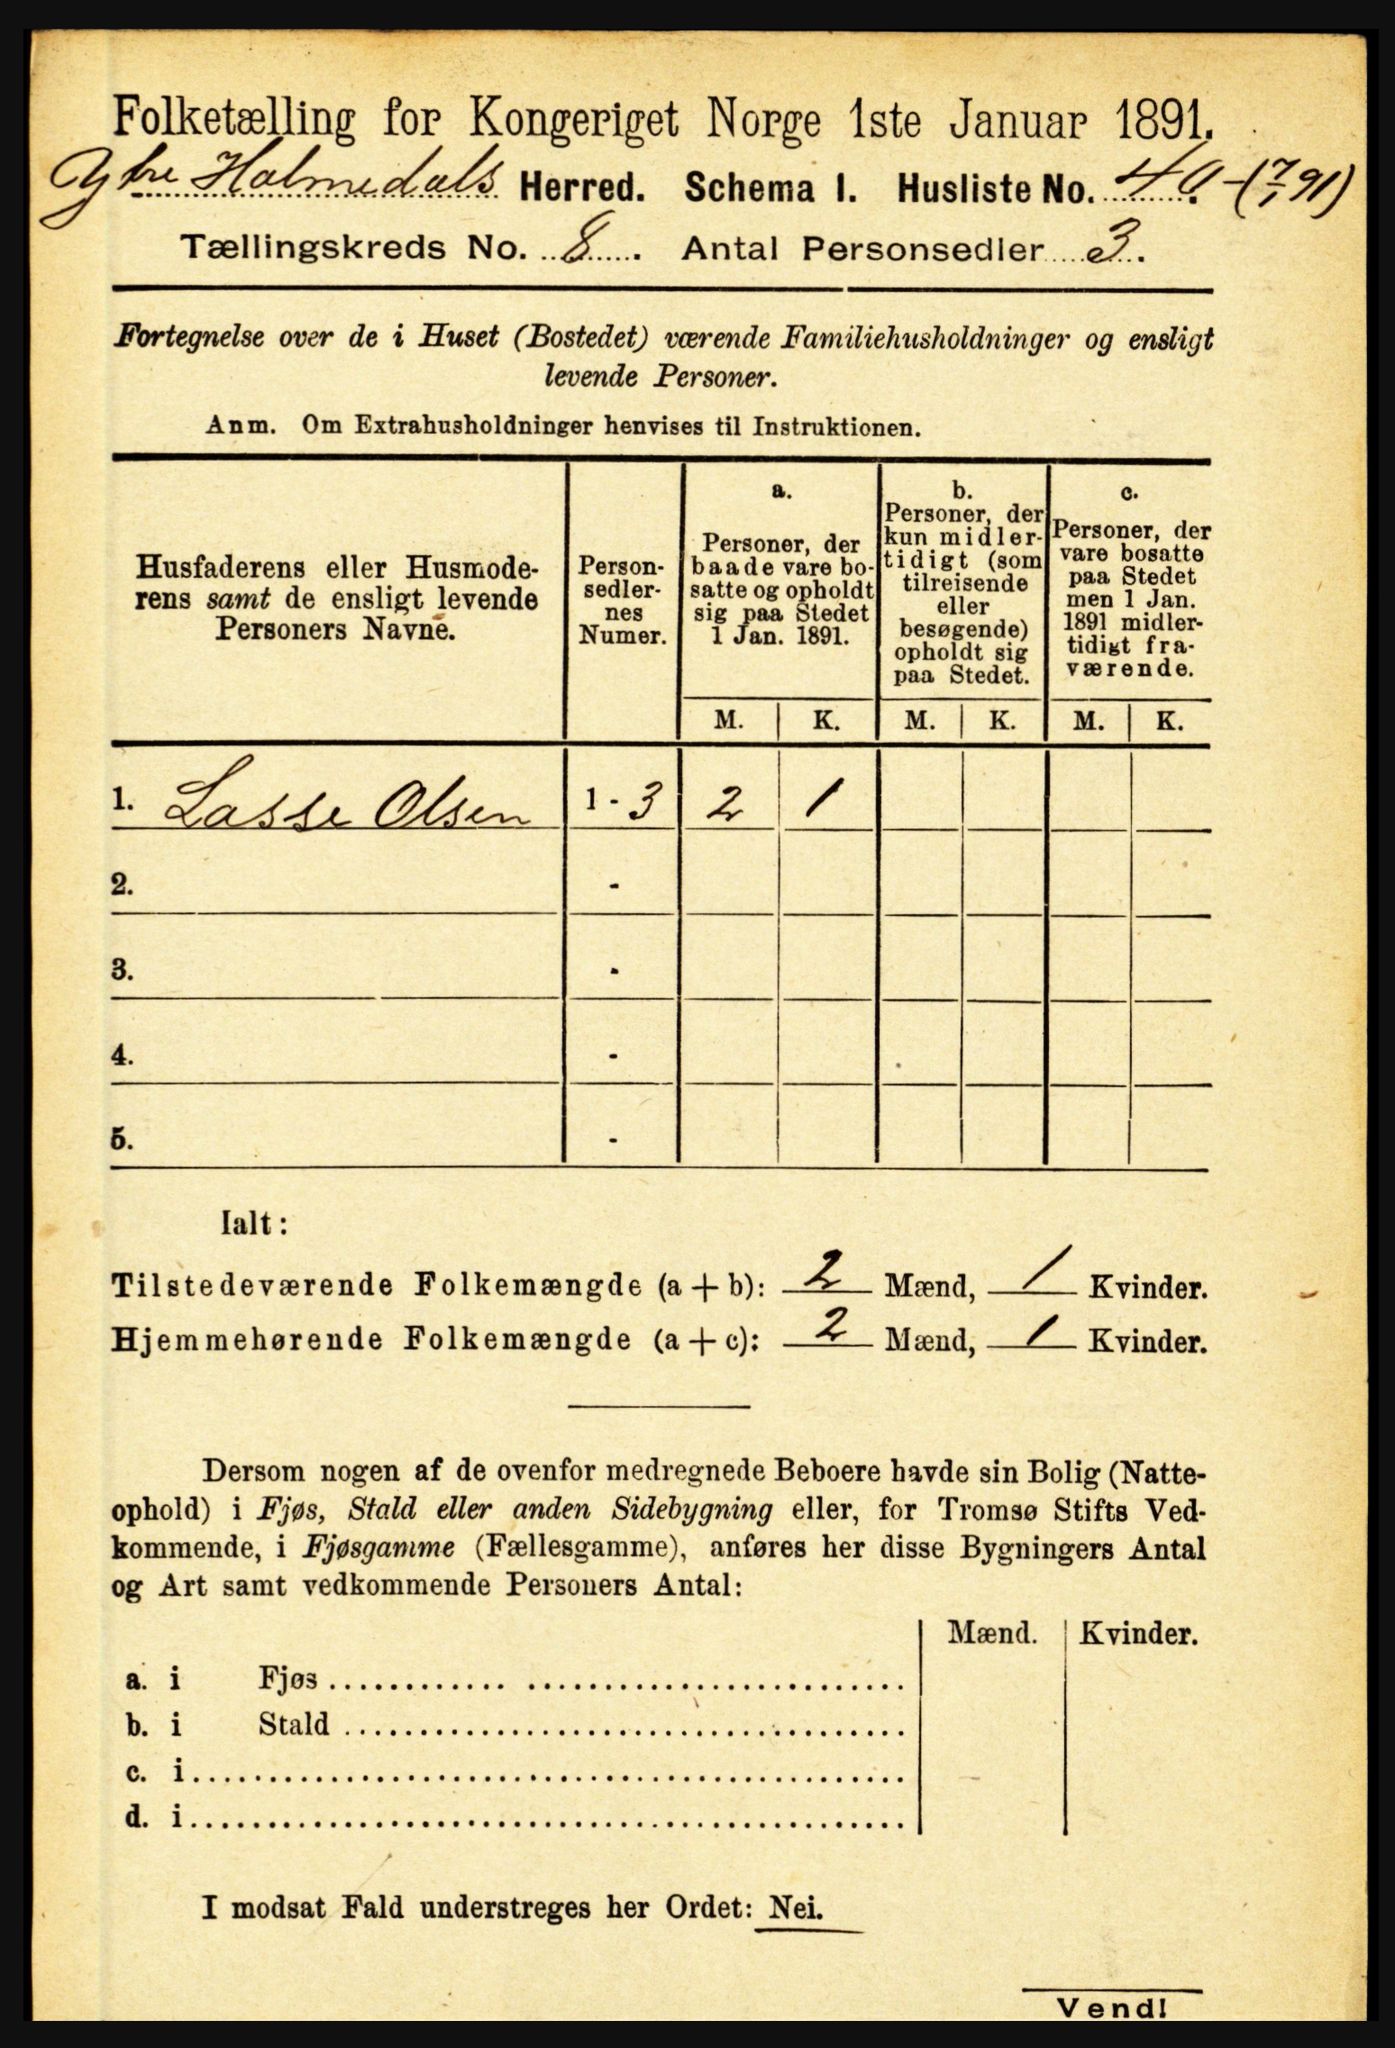 Folketælling for Kongeriget Norge 1ste Januar 1891.
Ytre Holmedals Herred. Schema I. Husliste No. 40 - (7/1 91)
Tællingskreds No. 8. Antal Personsedler 3.
Fortegnelse over de i Huset (Bostedet) værende Familiehusholdninger og ensligt
levende Personer.
Anm. Om Extrahusholdninger henvises til Instruktionen.
Husfaderens eller Husmode-
rens samt de ensligt levende
Personers Navne.
Person-
sedler-
nes
Numer.
a.
Personer, der
baade vare bo-
satte og opholdt
sig paa Stedet
1 Jan. 1891.
b.
Personer, der
kun midler-
tidigt (som
tilreisende
eller
besøgende)
opholdt sig
paa Stedet.
c.
Personer, der
vare bosatte
paa Stedet
men 1 Jan.
1891 midler-
tidigt fra-
værende.
M. K. M. K. M. K.
1. Lasse Olsen 1 - 3 2 1
2. -
3. -
4. -
5. -
Ialt:
Tilstedeværende Folkemængde (a + b): 2 Mænd, 1 Kvinder.
Hjemmehørende Folkemængde (a + c): 2 Mænd, 1 Kvinder.
Dersom nogen af de ovenfor medregnede Beboere havde sin Bolig (Natte-
ophold) i Fjøs, Stald eller anden Sidebygning eller, for Tromsø Stifts Ved-
kommende, i Fjøsgamme (Fællesgamme), anføres her disse Bygningers Antal
og Art samt vedkommende Personers Antal:
Mænd. Kvinder.
a. i Fjøs
b. i Stald
c. i
d. i
I modsat Fald understreges her Ordet: Nei.
Vend!